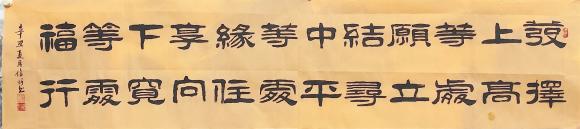 發上等願結中等緣享下等福
擇高處立尋平處住向寬處行
辛丑夏月